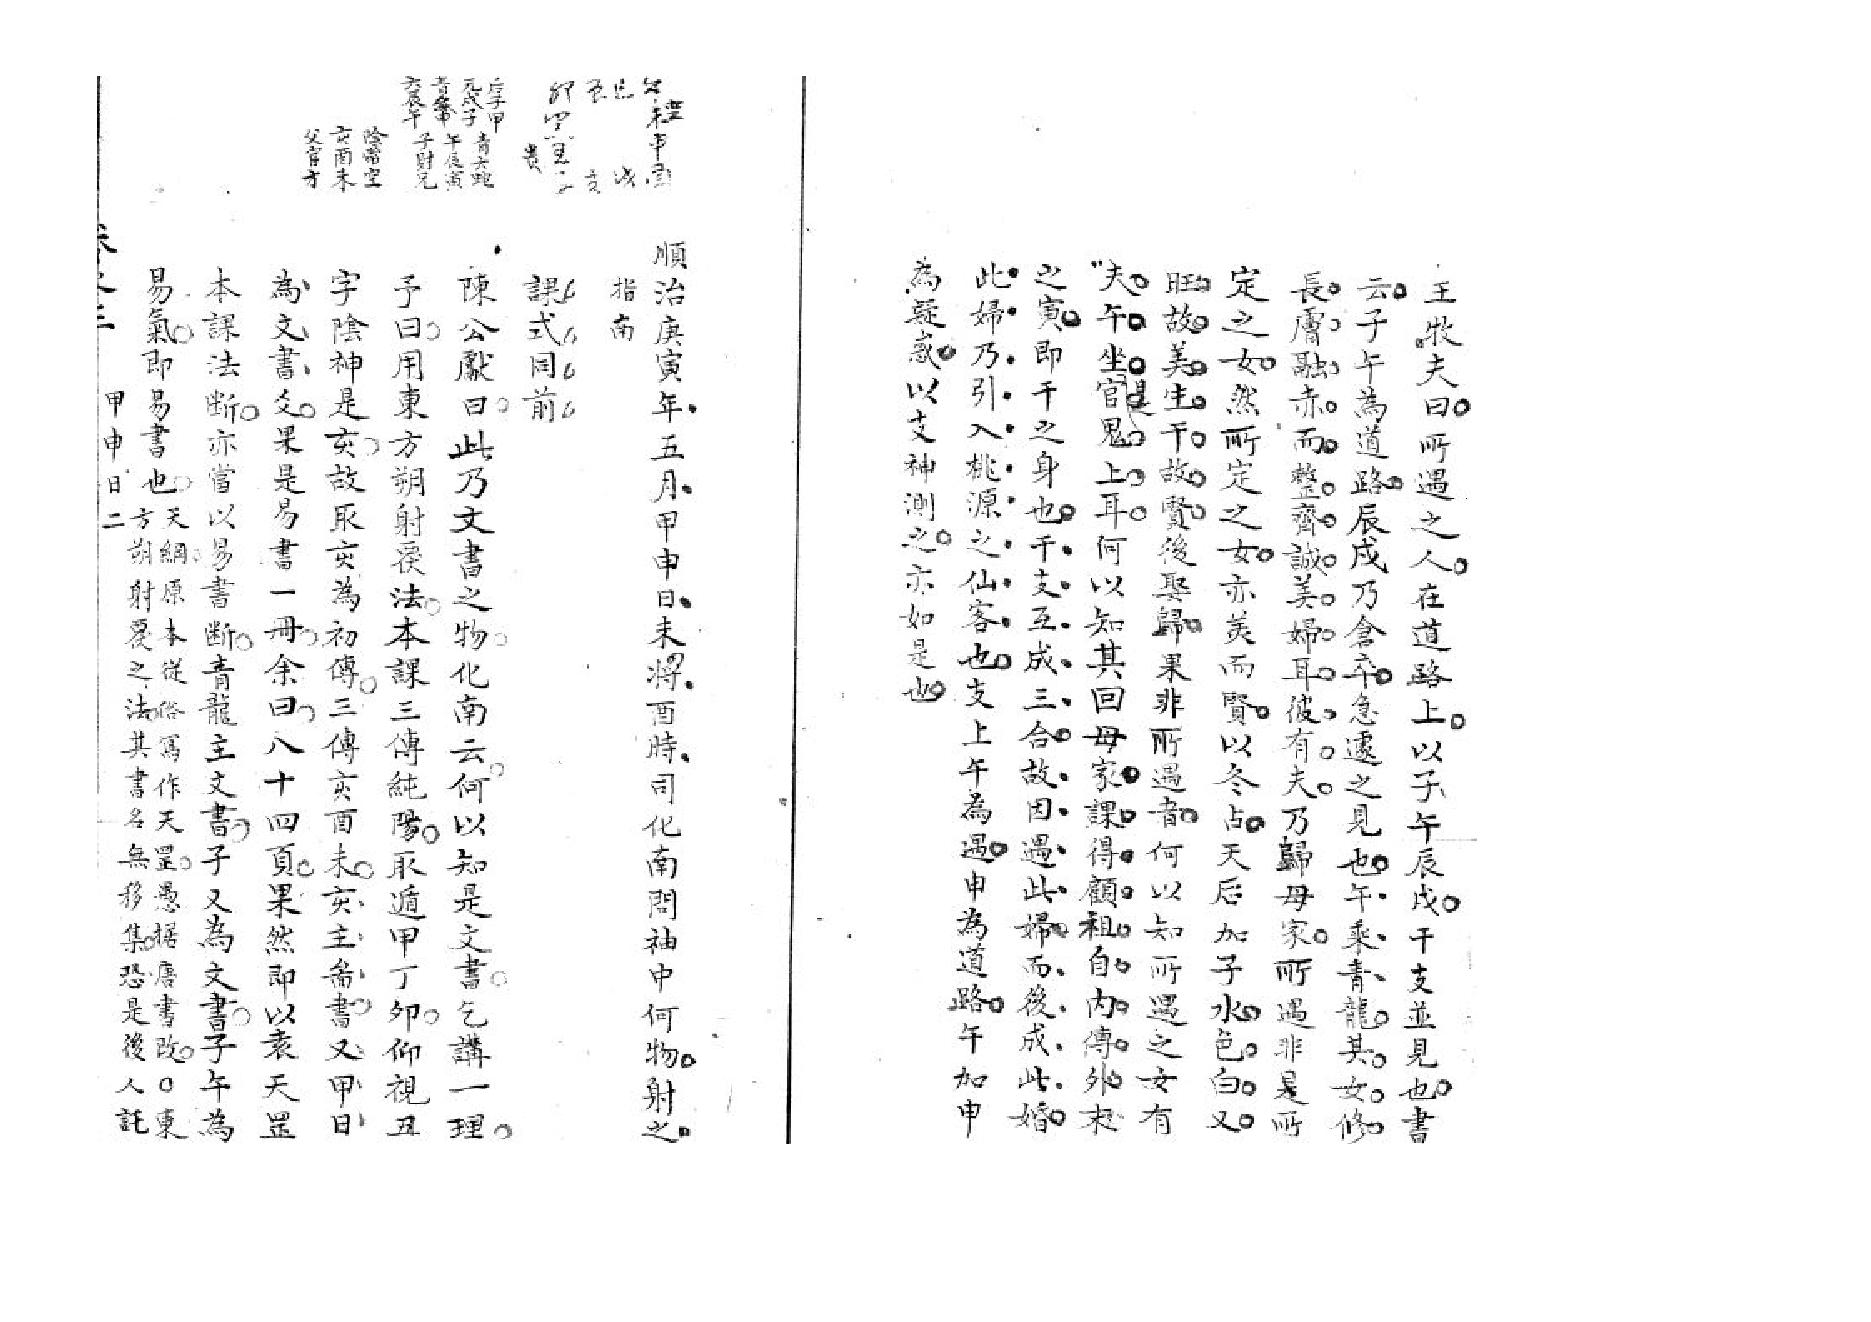 王牧夫曰所遇之人在道路上以子午辰戌干支並見也書
云子午為道路辰戌乃倉卒急遽之見也午乘青龍其女修
長膚融赤而整齊誠美婦耳彼有夫乃歸母家所遇非是所
定之女然所定之女亦美而賢以冬占天后加子水色白又
旺故美生干故賢後娶歸果非所遇者何以知所遇之女有
夫午坐官鬼上耳何以知其回母家課得顧祖自內傳外末
之寅即干之身也干支互成三合故因遇此婦而後成此婚
此婦乃引入桃源之仙客也支上午為遇申為道路午加申
為疑惑以支神測之亦如是也
順治庚寅年五月甲申日未將酉時司化南問袖中何物射之
指南
課式同前
陳公獻曰此乃文書之物化南云何以知是文書乞講一理
予曰用東方朔射覆法本課三傳純陽取遁甲丁卯仰視丑
字陰神是亥故取亥為初傳三傳亥酉未亥主畬書又甲日
為文書爻果是易書一冊余曰八十四頁果然即以袁天罡
本課法斷亦當以易書斷青龍主文書子又為文書子午為
易氣即易書也
天綱原本從俗寫作天罡愚據唐書改○東
方朔射覆之法其書名無移集恐是後人託
后子甲
元戌子
青龍申
六辰午
青六蛇
午辰寅
子財兄
陰常空
亥酉未
父官方
貴
卷之三
甲申日二